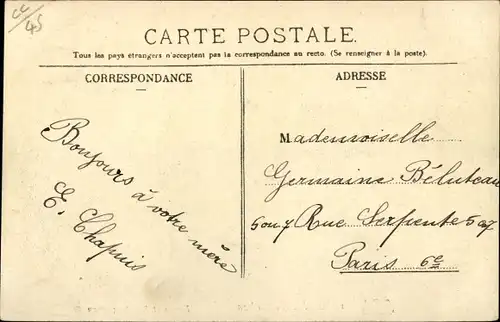 CARTE POSTALE.
Tous les pays étrangers n'acceptent pas la correspondance au recto. (Se renseigner à la poste).
CORRESPONDANCE
Bonjours à votre mère
E. Chapuis
ADRESSE
Mademoiselle
Germaine Béluteau
5 ou 7 Rue Serpente 5 ou 7
Paris 6e